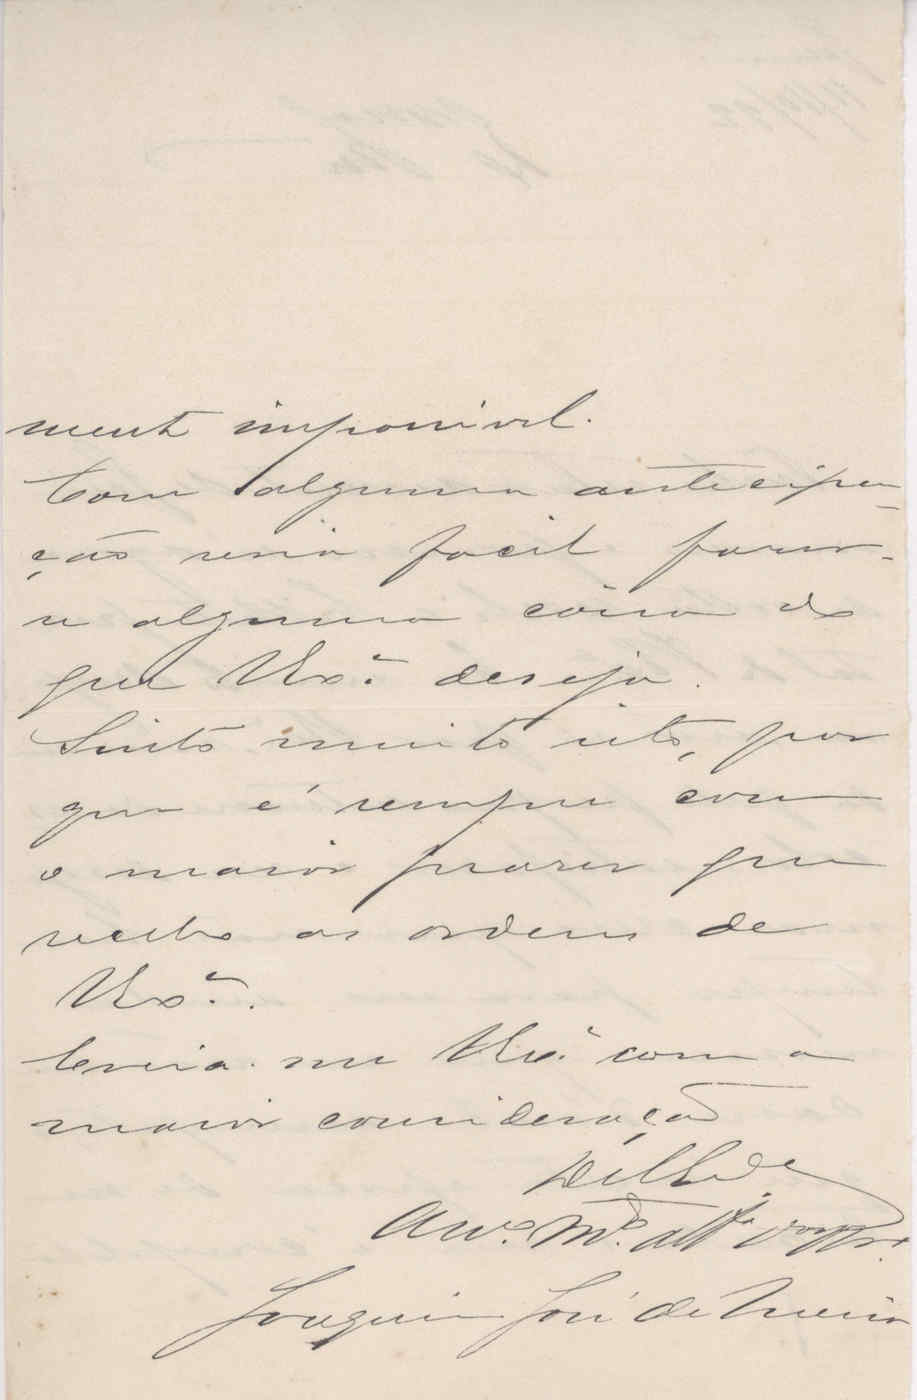 mente impossivel.
Com alguma anticipa-
ção seria facil fazer-
se alguma coisa do
que V Ex.ª deseja.
Sinto muito isto, por
que é sempre com
o maior prazer que
recebo as ordens de
V Ex.ª.
Creia-me V Ex.ª com a
maior consideração
De V. Ex.ª
Am.º M.to att.º
Joaquim José de